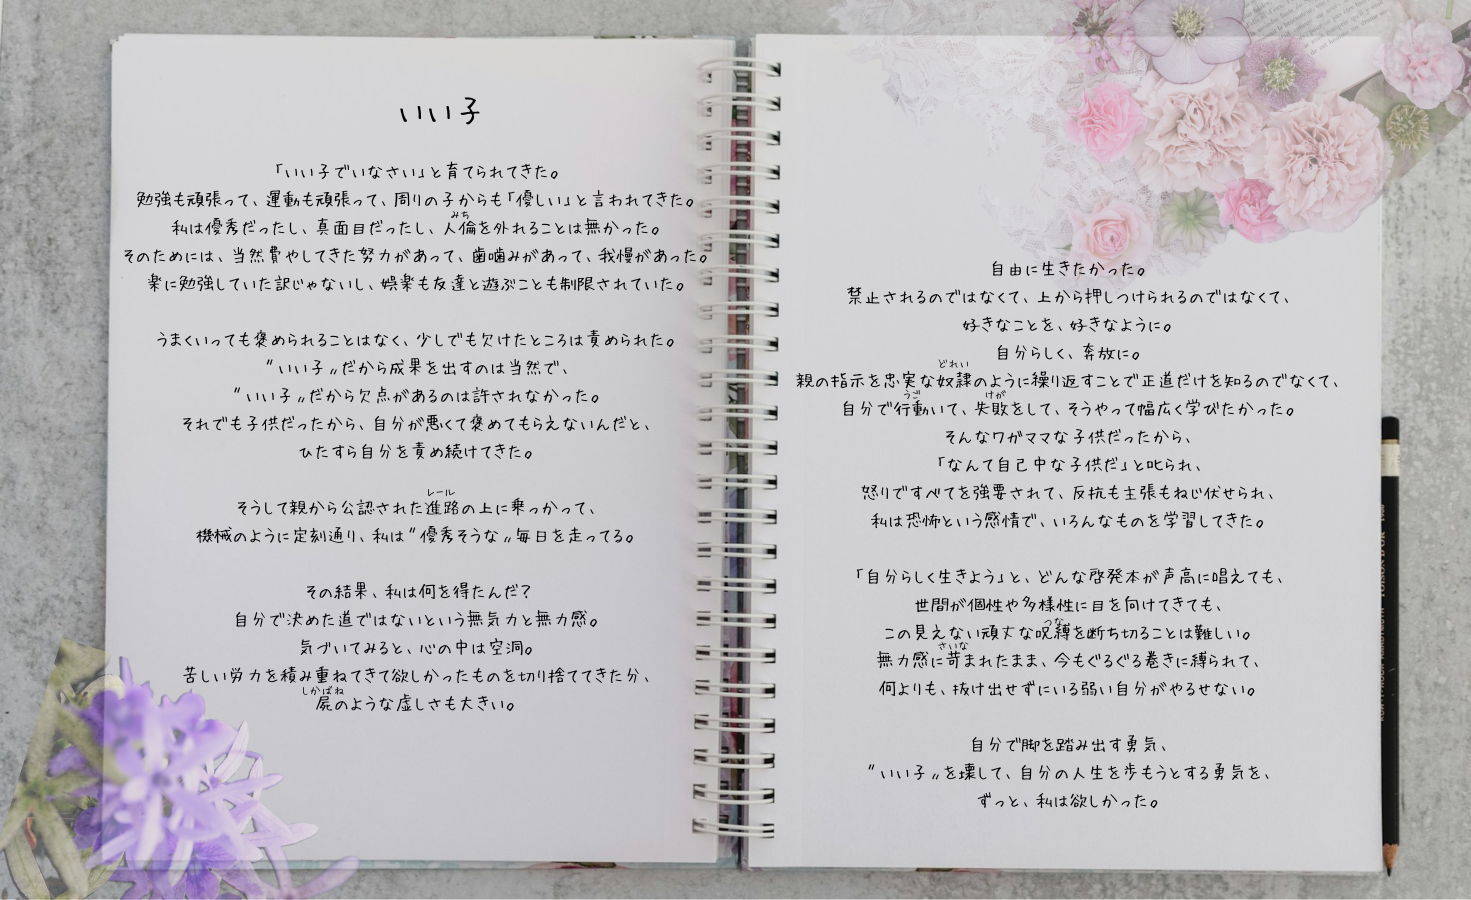 いい子
「いい子でいなさい」と育てられてきた。
勉強も頑張って、運動も頑張って、周りの子からも「優しい」と言われてきた。
みち
私は優秀だったし、真面目だったし、人倫を外れることは無かった。
そのためには、当然費やしてきた努力があって、歯噛みがあって、我慢があった。
楽に勉強していた訳じゃないし、娯楽も友達と遊ぶことも制限されていた。
うまくいっても褒められることはなく、少しでも欠けたところは責められた。
〝いい子〟だから成果を出すのは当然で、
〝いい子〟だから欠点があるのは許されなかった。
それでも子供だったから、自分が悪くて褒めてもらえないんだと、
ひたすら自分を責め続けてきた。
レール
そうして親から公認された進路の上に乗っかって、
機械のように定刻通り、私は〝優秀そうな〟毎日を走ってる。
その結果、私は何を得たんだ？
自分で決めた道ではないという無気力と無力感。
気づいてみると、心の中は空洞。
苦しい労力を積み重ねてきて欲しかったものを切り捨ててきた分、
しかばね
屍のような虚しさも大きい。
自由に生きたかった。
禁止されるのではなくて、上から押しつけられるのではなくて、
好きなことを、好きなように。
自分らしく、奔放に。
どれい
親の指示を忠実な奴隷のように繰り返すことで正道だけを知るのでなくて、
うご けが
自分で行動いて、失敗をして、そうやって幅広く学びたかった。
そんなワガママな子供だったから、
「なんて自己中な子供だ」と叱られ、
怒りですべてを強要されて、反抗も主張もねじ伏せられ、
私は恐怖という感情で、いろんなものを学習してきた。
「自分らしく生きよう」と、どんな啓発本が声高に唱えても、
世間が個性や多様性に目を向けてきても、
つな
この見えない頑丈な呪縛を断ち切ることは難しい。
さいな
無力感に苛まれたまま、今もぐるぐる巻きに縛られて、
何よりも、抜け出せずにいる弱い自分がやるせない。
自分で脚を踏み出す勇気、
〝いい子〟を壊して、自分の人生を歩もうとする勇気を、
ずっと、私は欲しかった。